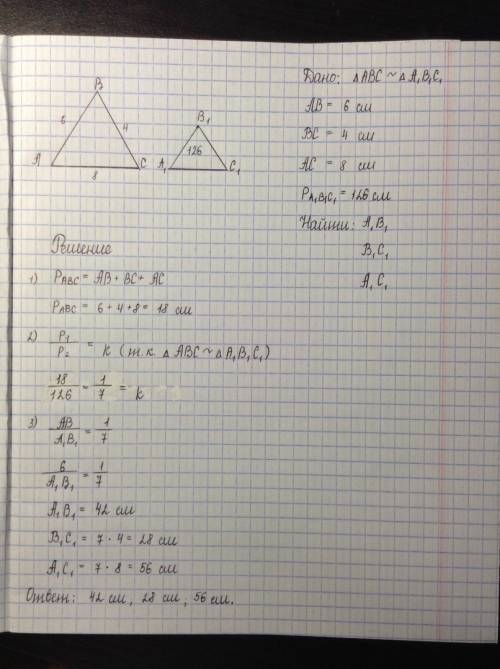 B
6
4
A
C
8
B₁
126
A₁
C₁
Дано: △ABC ~ △A₁B₁C₁
AB = 6 см
BC = 4 см
AC = 8 см
P A₁B₁C₁ = 126 см
Найти: A₁B₁
B₁C₁
A₁C₁
Решение
1) P ABC = AB + BC + AC
P ABC = 6 + 4 + 8 = 18 см
2) P₁/P₂ = k (т.к. △ABC ~ △A₁B₁C₁)
18/126 = 1/7 = k
3) AB/A₁B₁ = 1/7
6/A₁B₁ = 1/7
A₁B₁ = 42 см
B₁C₁ = 7 · 4 = 28 см
A₁C₁ = 7 · 8 = 56 см
Ответ: 42 см, 28 см, 56 см.